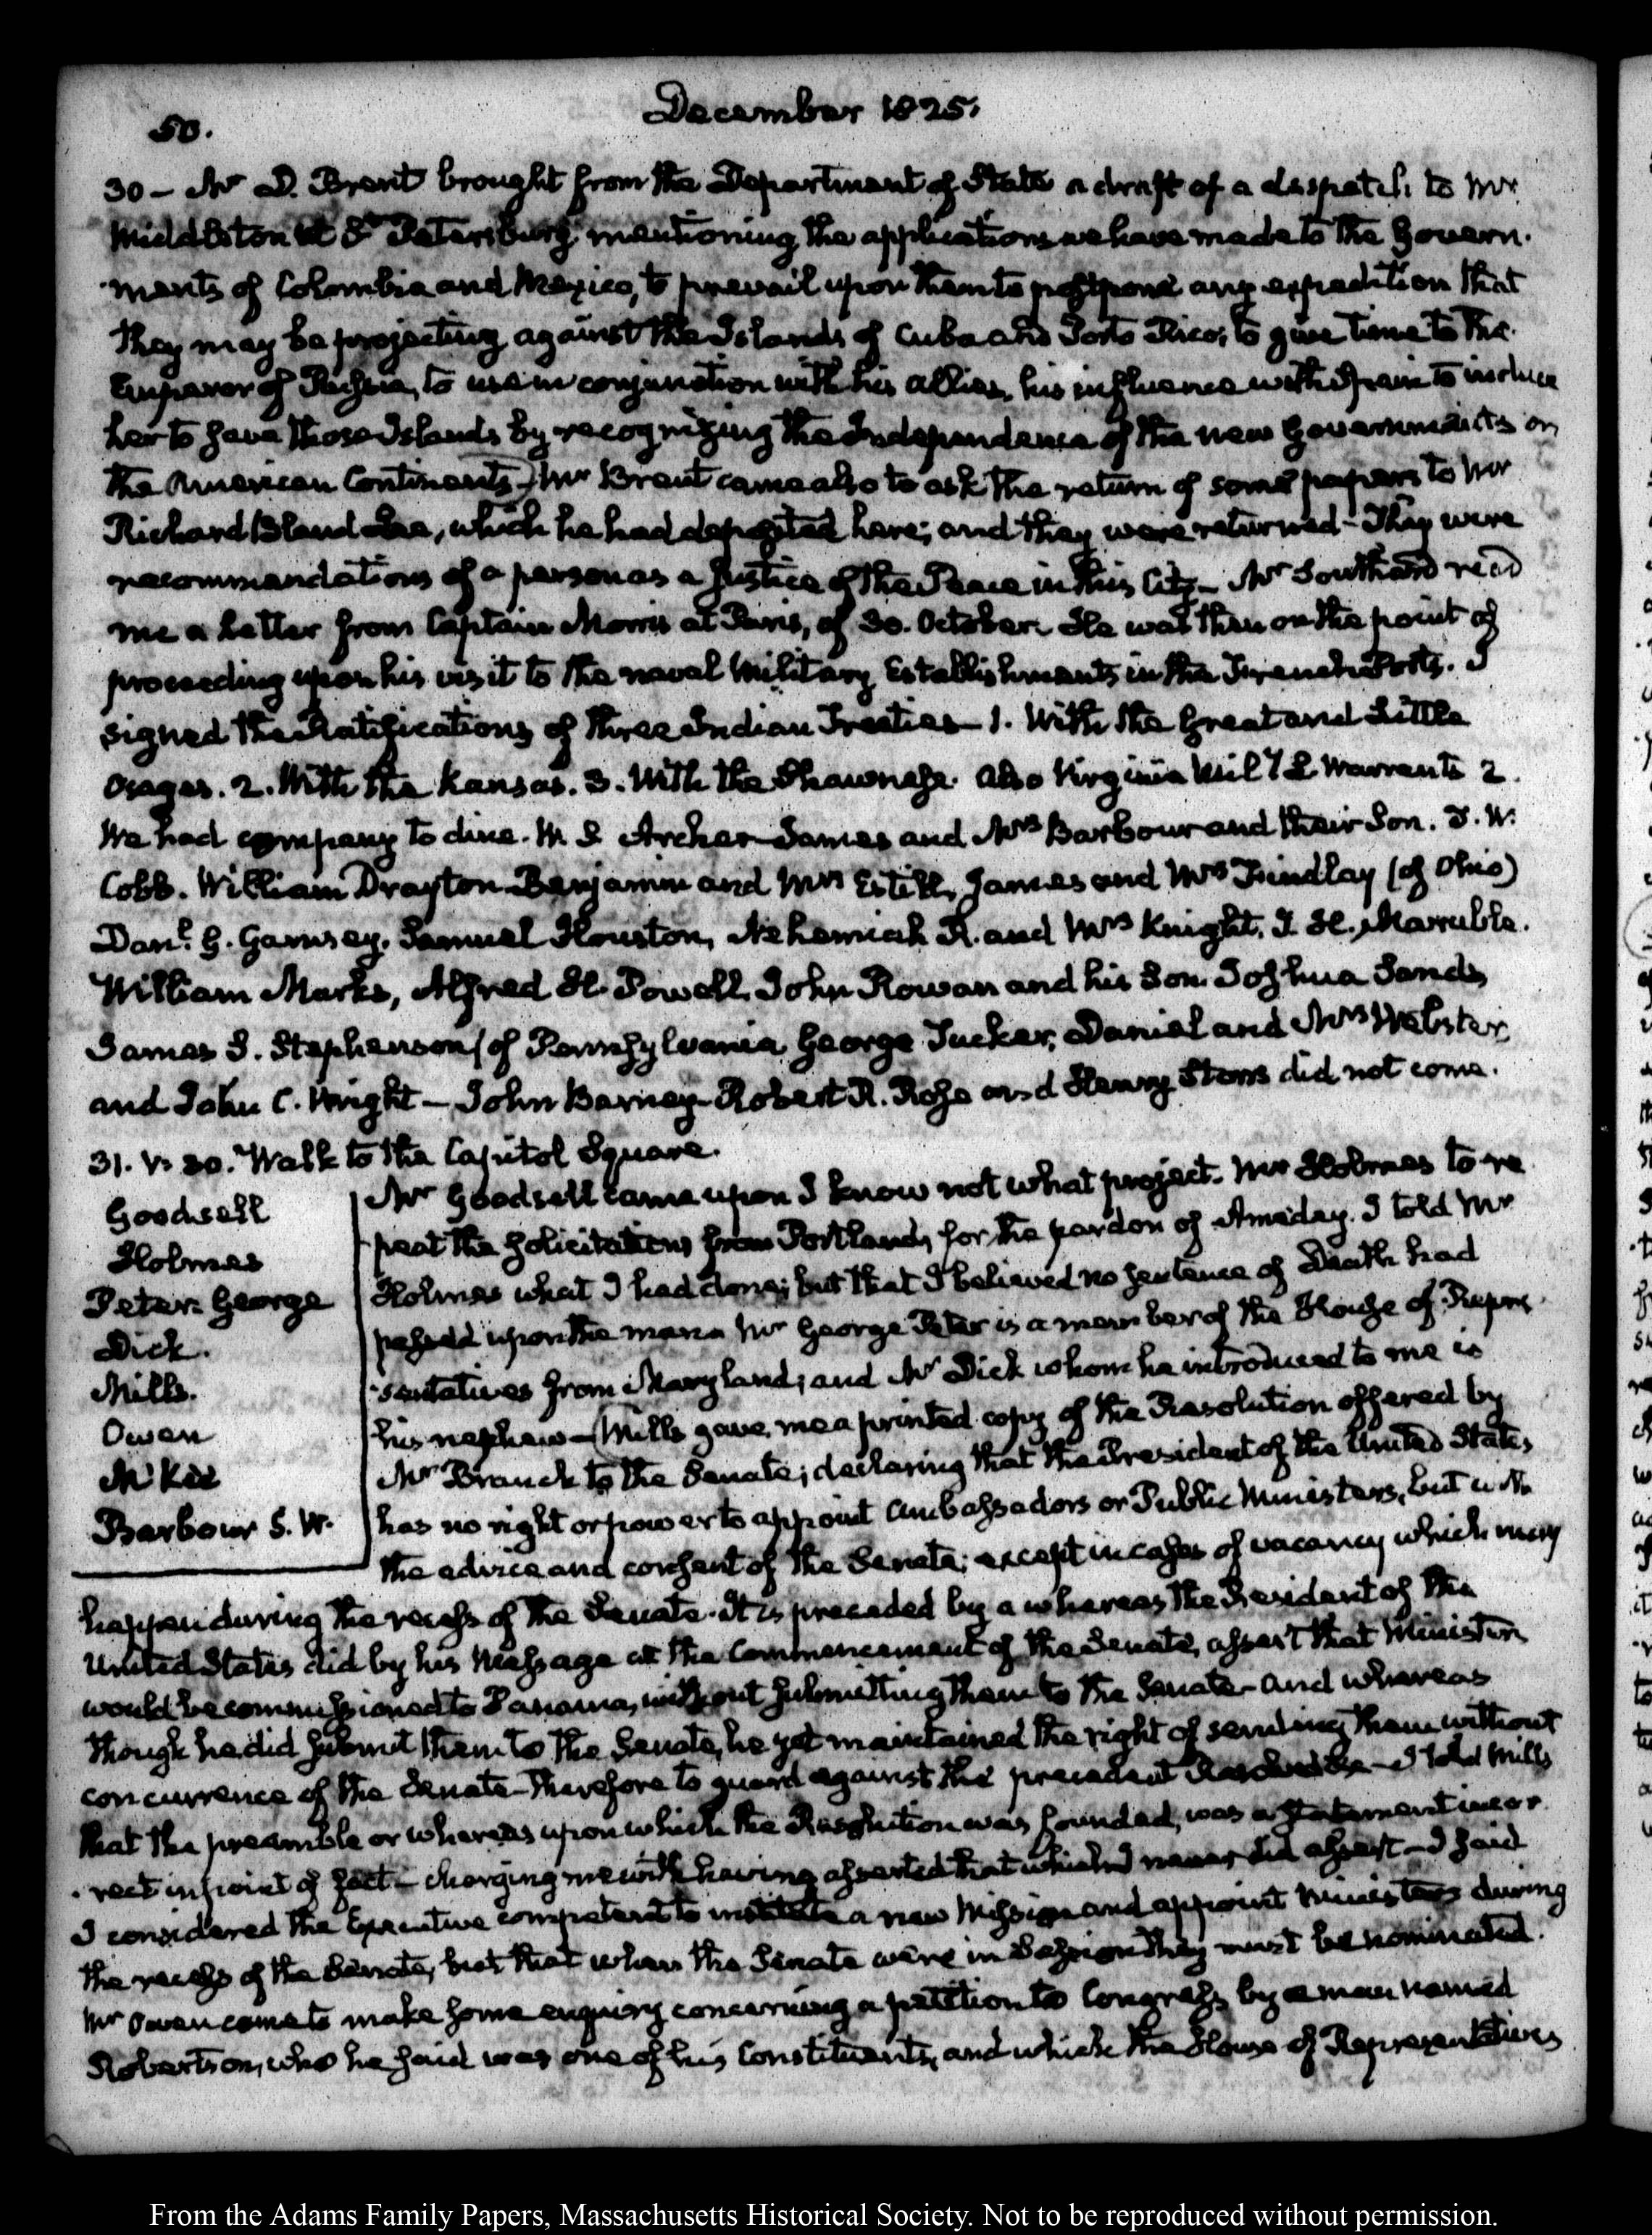 50.
December 1825.
30 – Mr D. Brent brought from the Department of State a draft of a despatch to Mr
Middleton at St Petersburg mentioning the applications we have made to the Govern-
-ments of Colombia and Mexico, to prevail upon them to postpone any expedition that
they may be projecting against the Islands of Cuba and Porto Rico, to give time to the
Emperor of Russia, to use in conjunction with his allies, his influence with Spain to induce
her to save those Islands by recognizing the Independence of the new Governments on
the American Continents – Mr Brent came also to ask the return of some papers to Mr
Richard Bland Lee, which he had deposited here; and they were returned – They were
recommendations of a person as a Justice of the Peace in this City – Mr Southard read
me a Letter from Captain Morris at Paris, of 30. October. He was then on the point of
proceeding upon his visit to the naval Military Establishments in the French Ports. I
signed the Ratifications of three Indian Treaties – 1. With the Great and Little
Osages. 2. With the Kansas. 3. With the Shawnese. Also Virginia Mily L Warrants 2.
We had company to dine. W. S Archer James and Mrs Barbour and their Son. T. W.
Cobb. William Drayton Benjamin and Mrs Estill, James and Mrs Findlay (of Ohio)
Danl. G. Garnsey, Samuel Houston, Nehemiah R. and Mrs Knight, J. H. Marable.
William Marks, Alfred H. Powell, John Rowan and his Son. Joshua Sands,
James S. Stephenson (of Pennsylvania George Tucker, Daniel and Mrs Webster,
and John C. Wright – John Barney Robert R. Rose and Henry Storrs did not come.
31. V: 30. Walk to the Capitol Square.
Goodsell
Holmes
Peter. George
Dick.
Mills.
Owen
McKee
Barbour S. W.
Mr Goodsell came upon I know not what project. Mr Holmes to re
peat the solicitations from Portland, for the pardon of Ameday. I told Mr
Holmes what I had done; but that I believed no sentence of Death had
passed upon the man. Mr George Peter is a member of the House of Repre
-sentatives from Maryland; and Mr Dick whom he introduced to me is
his nephew – Mills gave me a printed copy of the Resolution offered by
Mr Branch to the Senate; declaring that the President of the United States
has no right or power to appoint Ambassadors or Public Ministers, but with
the advice and consent of the Senate; except in cases of vacancy which may
happen during the recess of the Senate. It is preceded by a whereas the President of the
United States did by his Message at the Commencement of the Senate, assert that Ministers
would be commissioned to Panama, without submitting them to the Senate – and whereas
though he did submit them to the Senate, he yet maintained the right of sending them without
concurrence of the Senate – Therefore to guard against the precedent Resolved &c – I told Mills
that the preamble or whereas upon which the Resolution was founded, was a statement incor
-rect in point of fact – charging me with having asserted that which I never did assert – I said
I considered the Executive competent to institute a new Mission and appoint Ministers during
the recess of the Senate, but that when the Senate were in Session they must be nominated.
Mr Owen came to make some enquiry concerning a petition to Congress by a man named
Robertson, who he said was one of his Constituents, and which the House of Representatives
From the Adams Family Papers, Massachusetts Historical Society. Not to be reproduced without permission.